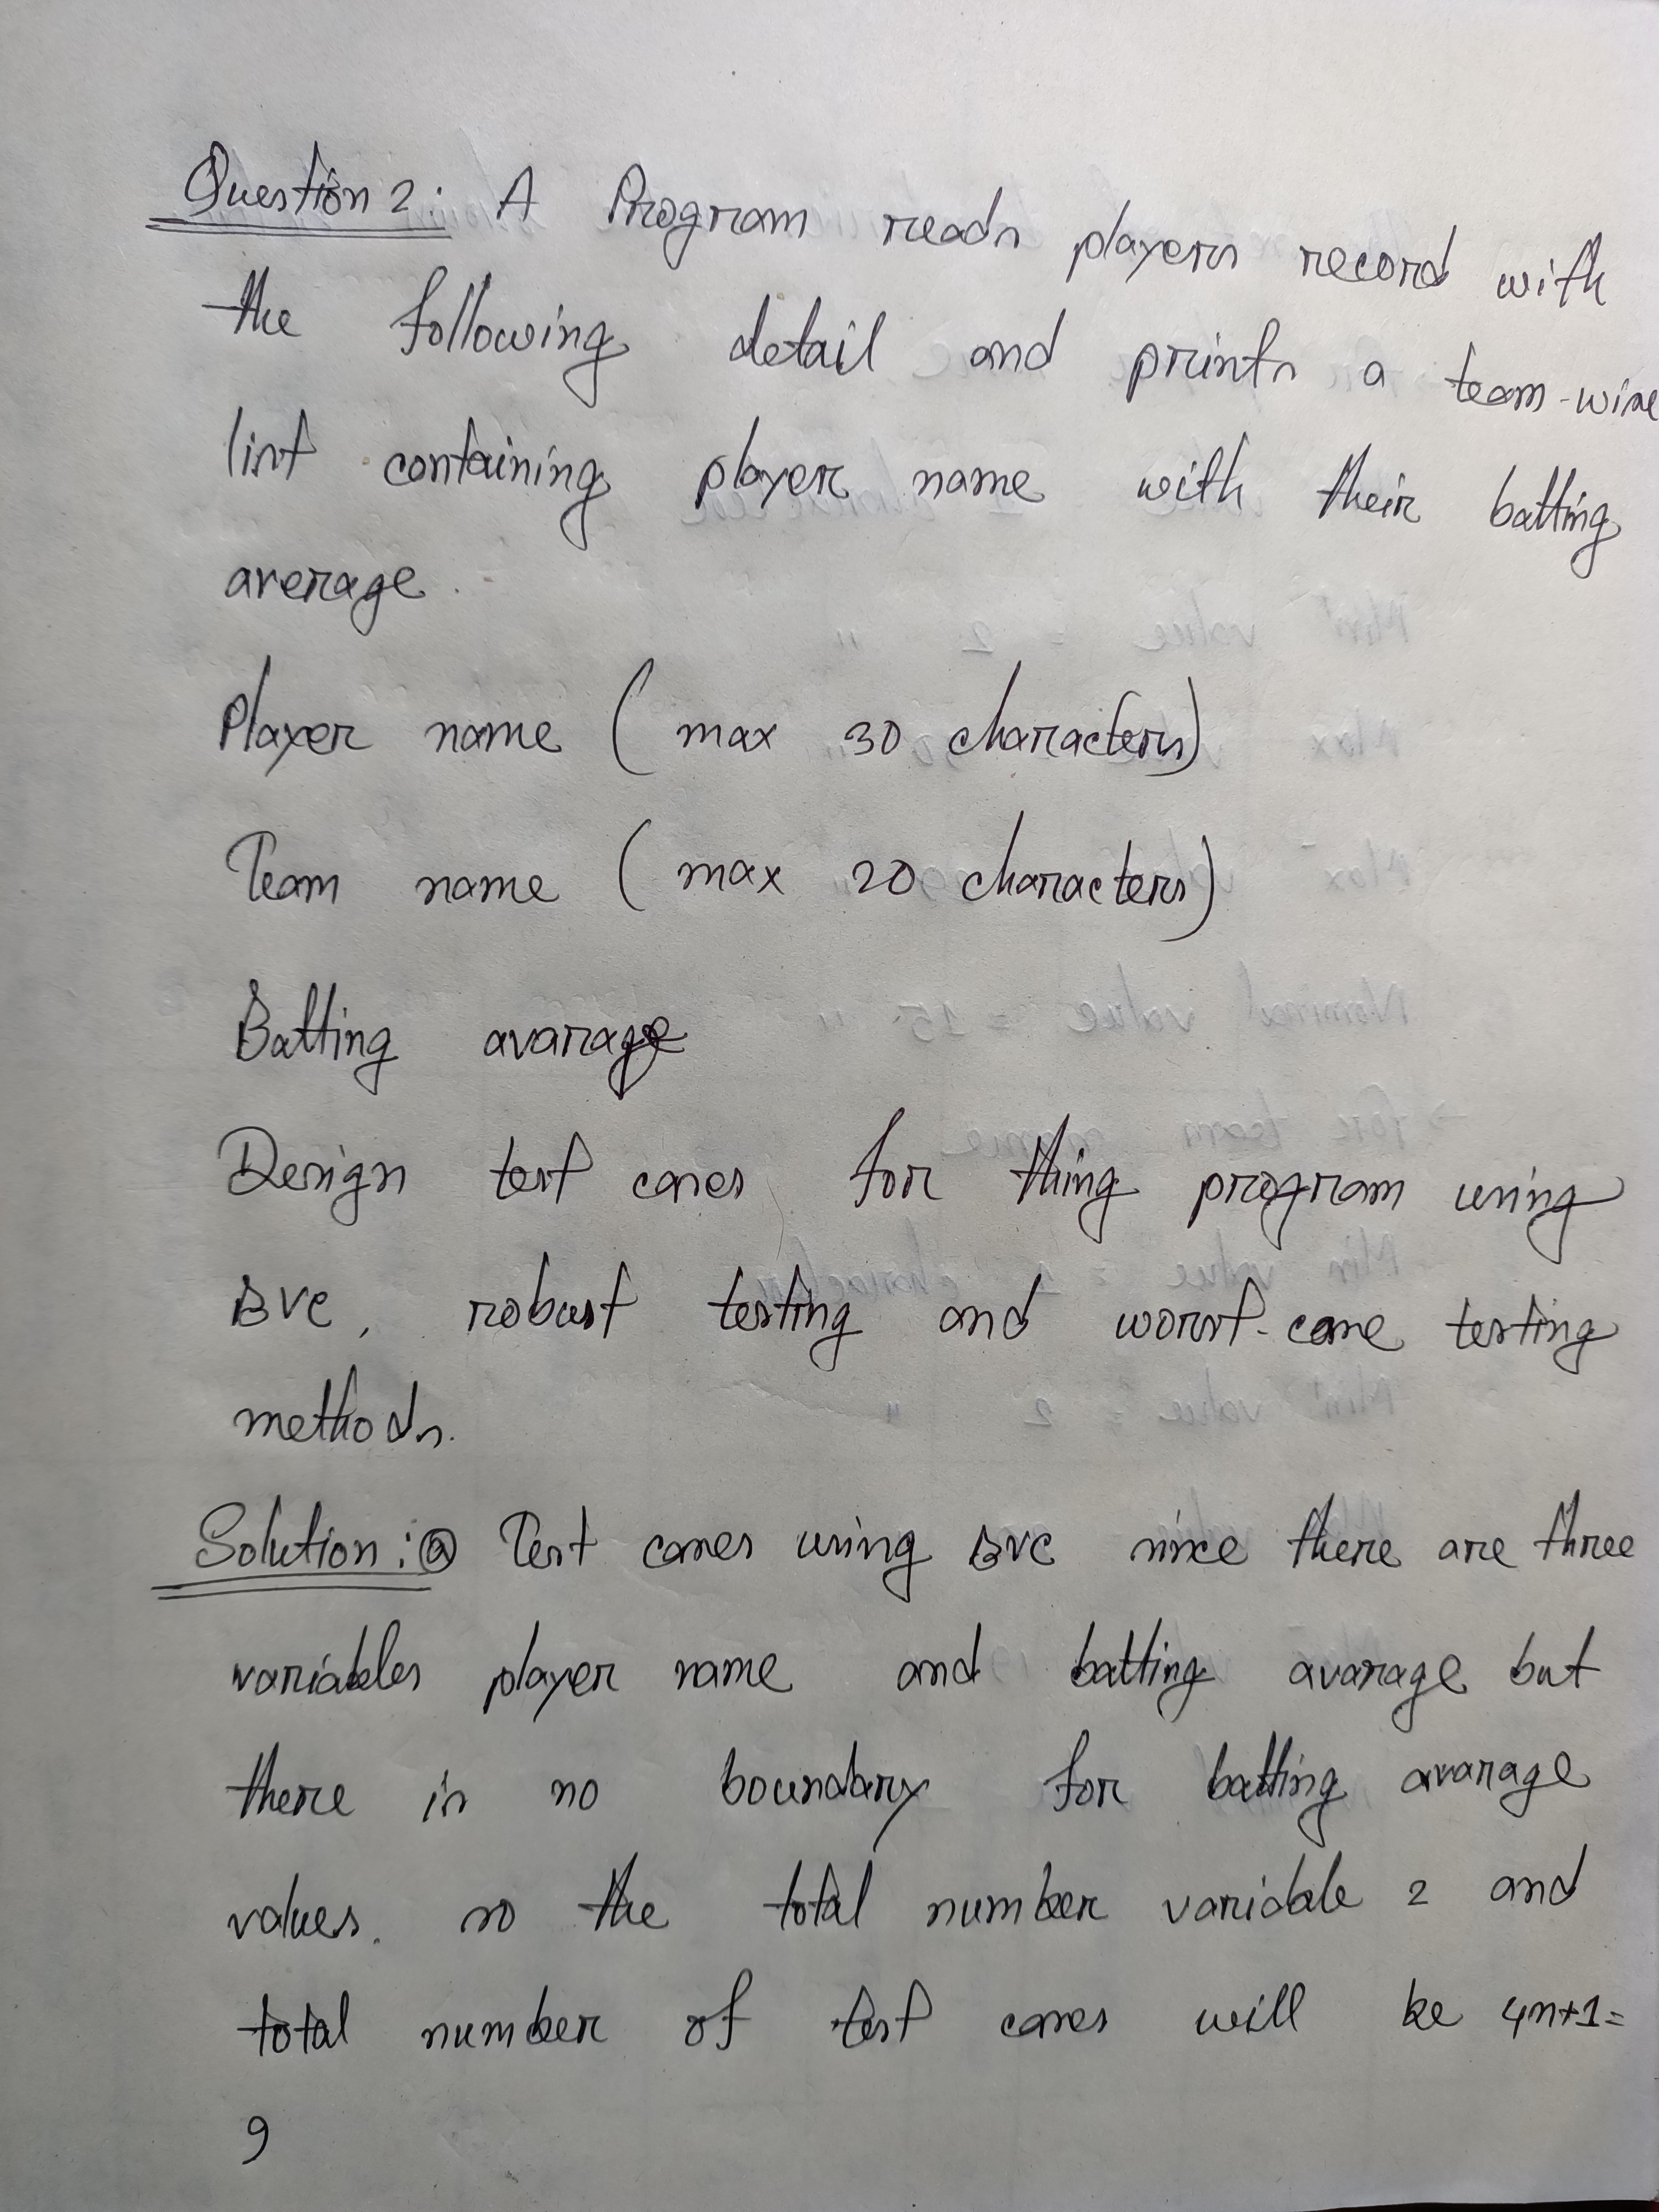 Question 2: A Program reads players record with
the following detail and prints a team-wise
list containing player name with their batting
average.
Player name (max 30 characters)
Team name (max 20 characters)
Batting avarage
Design test cases for thing program using
BVC, robust testing and worst-case testing
methods.
Solution: ⓐ Test cases using BVC since there are three
variables player name and batting avarage but
there is no boundary for batting avarage
values. so the total number variable 2 and
total number of test cases will be 4n+1=
9